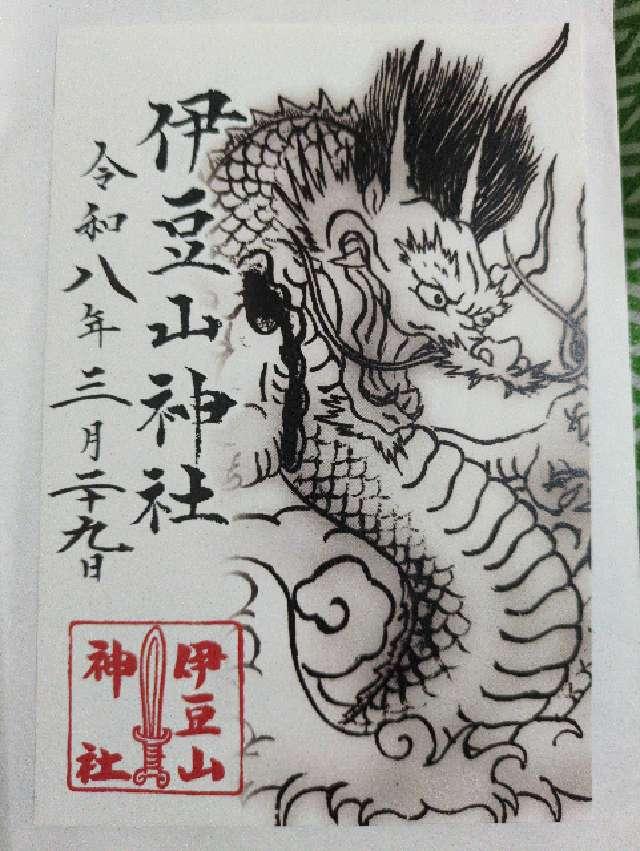 伊豆山神社
令和八年三月二十九日
伊豆山
神社